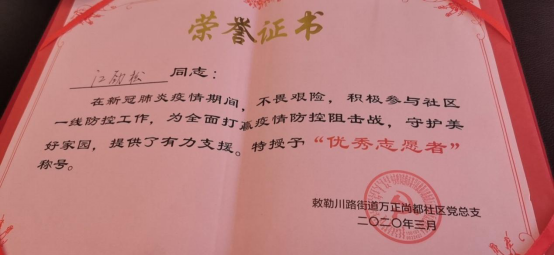 荣誉证书
江欣松 同志：
在新冠肺炎疫情期间，不畏艰险，积极参与社区
一线防控工作，为全面打赢疫情防控阻击战，守护美
好家园，提供了有力支援。特授予“优秀志愿者”
称号。
敕勒川路街道万正尚都社区党总支
二〇二〇年三月